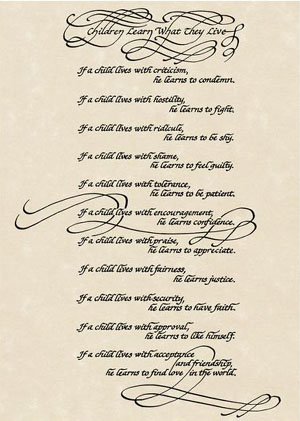 Children Learn What They Live
If a child lives with criticism,
he learns to condemn.
If a child lives with hostility,
he learns to fight.
If a child lives with ridicule,
he learns to be shy.
If a child lives with shame,
he learns to feel guilty.
If a child lives with tolerance,
he learns to be patient.
If a child lives with encouragement,
he learns confidence.
If a child lives with praise,
he learns to appreciate.
If a child lives with fairness,
he learns justice.
If a child lives with security,
he learns to have faith.
If a child lives with approval,
he learns to like himself.
If a child lives with acceptance
and friendship,
he learns to find love in the world.